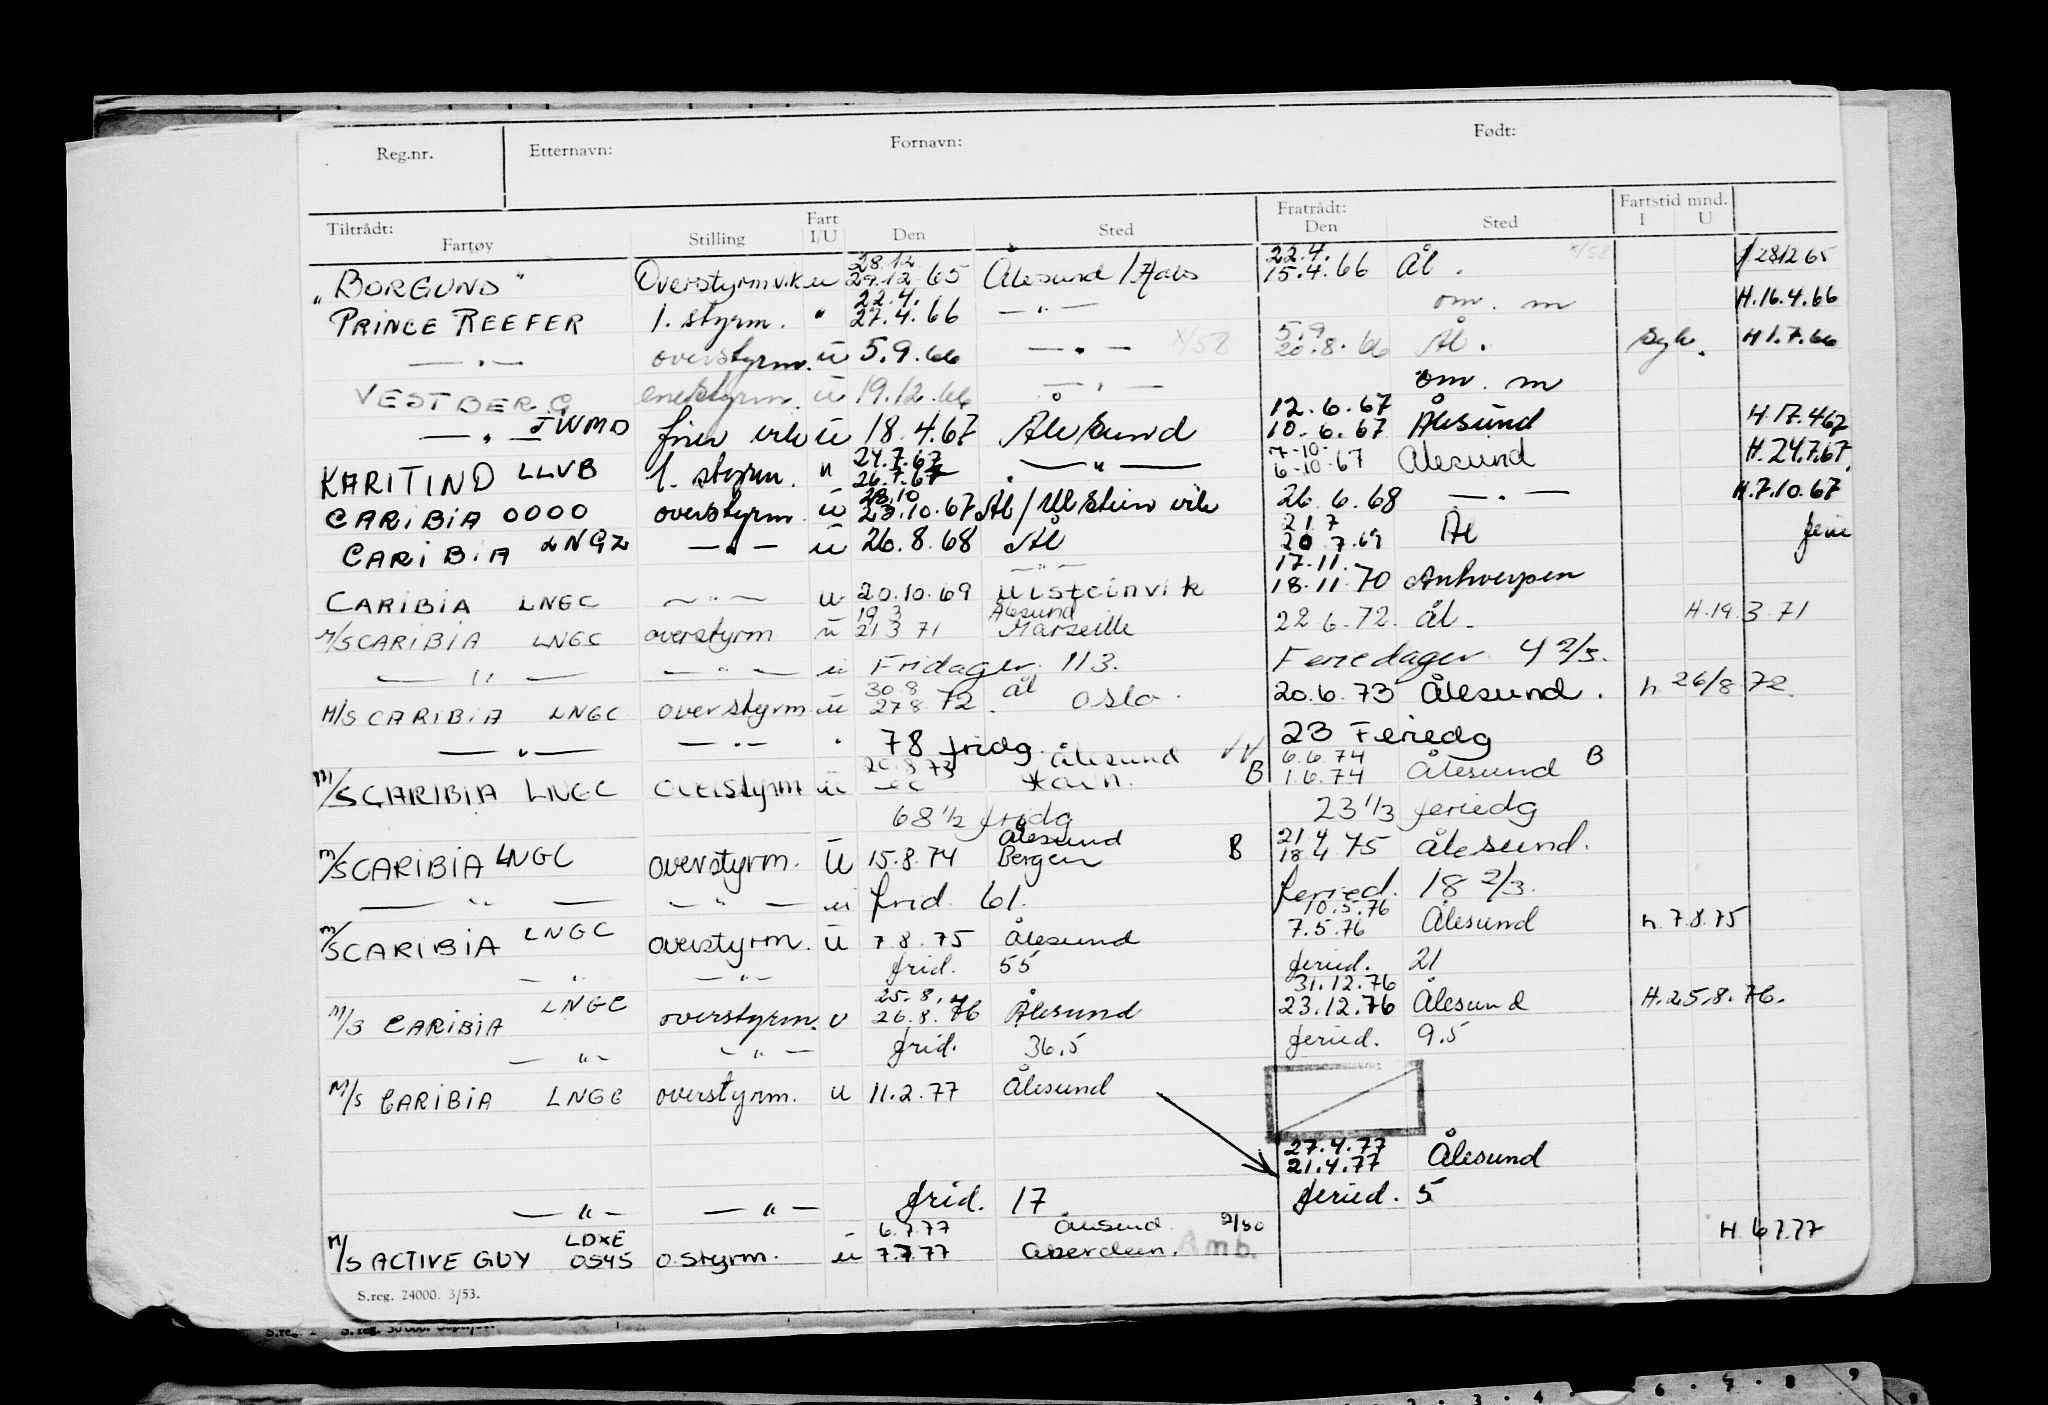 Reg.nr. Etternavn: Fornavn: Født:
Tiltrådt: Fartøy Stilling Fart I/U Den Sted Fratrådt: Den Sted Fartstid mnd. I U
28.12 22.4.
"BORGUND" Overstyrm vik u 29.12.65 Ålesund / 15.4.66 Ål. 281265
22.4.
PRINCE REEFER 1. styrm. " 27.4.66 — " — om. m H.16.4.66
5.9
— " — overstyrm. u 5.9.66 — " — X/58 20.8.66 Ål. Syk. H 1.7.66
VESTBERG enestyrm. u 19.12.66 — " — om. m
12.6.67
— " — JWMO frier vik u 18.4.67 Ålesund 10.6.67 Ålesund H.17.4.67
24.7.67 7-10-
KARITIND LLVB 1. styrm. u 26.7.67 — " — 6-10-67 Ålesund H.24.7.67.
23.10
CARIBIA 0000 overstyrm u 23.10.67 Ål / Ulstein vik 26.6.68 — " — H.7.10.67
21 7
CARIBIA LNGZ — " — u 26.8.68 Ål 20.7.69 Ål ferie
— " — 17.11.
CARIBIA LNGC — " — u 20.10.69 Ulsteinvik 18.11.70 Antwerpen
19 3 Ålesund
M/S CARIBIA LNGC overstyrm u 21 3 71 Marseille 22 6.72. Ål. H.19.3.71
— " — — " — u Fridager 113. Feriedager 4 2/3.
30.8 Ål
M/S CARIBIA LNGC overstyrm u 27.8.72. Oslo. 20.6.73 Ålesund. h 26/8 72.
— " — — " — " 78 fridg. 23 Feriedg
20.8.73 Ålesund 6.6.74
M/S CARIBIA LNGC overstyrm u Havn. B 1.6.74 Ålesund B
68 1/2 fridg 23 1/3 feriedg
Ålesund 21 4
M/S CARIBIA LNGC overstyrm. U 15.8.74 Bergen B 18 4 75 Ålesund.
— " — — " — u frid 61. feried. 18 2/3.
10.5.76
M/S CARIBIA LNGC overstyrm. U 7.8.75 Ålesund 7.5.76 Ålesund h. 7.8.75
— " — — " — frid. 55 feried. 21
25.8. 31.12.76
M/S CARIBIA LNGC overstyrm. U 26.8.76 Ålesund 23.12.76 Ålesund H.25.8.76.
— " — — " — frid. 36,5 feried. 9.5
M/S CARIBIA LNGC overstyrm. u 11.2.77 Ålesund
27.4.77
21.4.77 Ålesund
— " — — " — frid. 17 feried. 5
LDXE 6.7.77 Ålesund 2/80
M/S ACTIVE GUY 0545 o.styrm. u 7.7.77 Aberdeen. Amb. H 6.7.77
S.reg. 24000. 3/53.